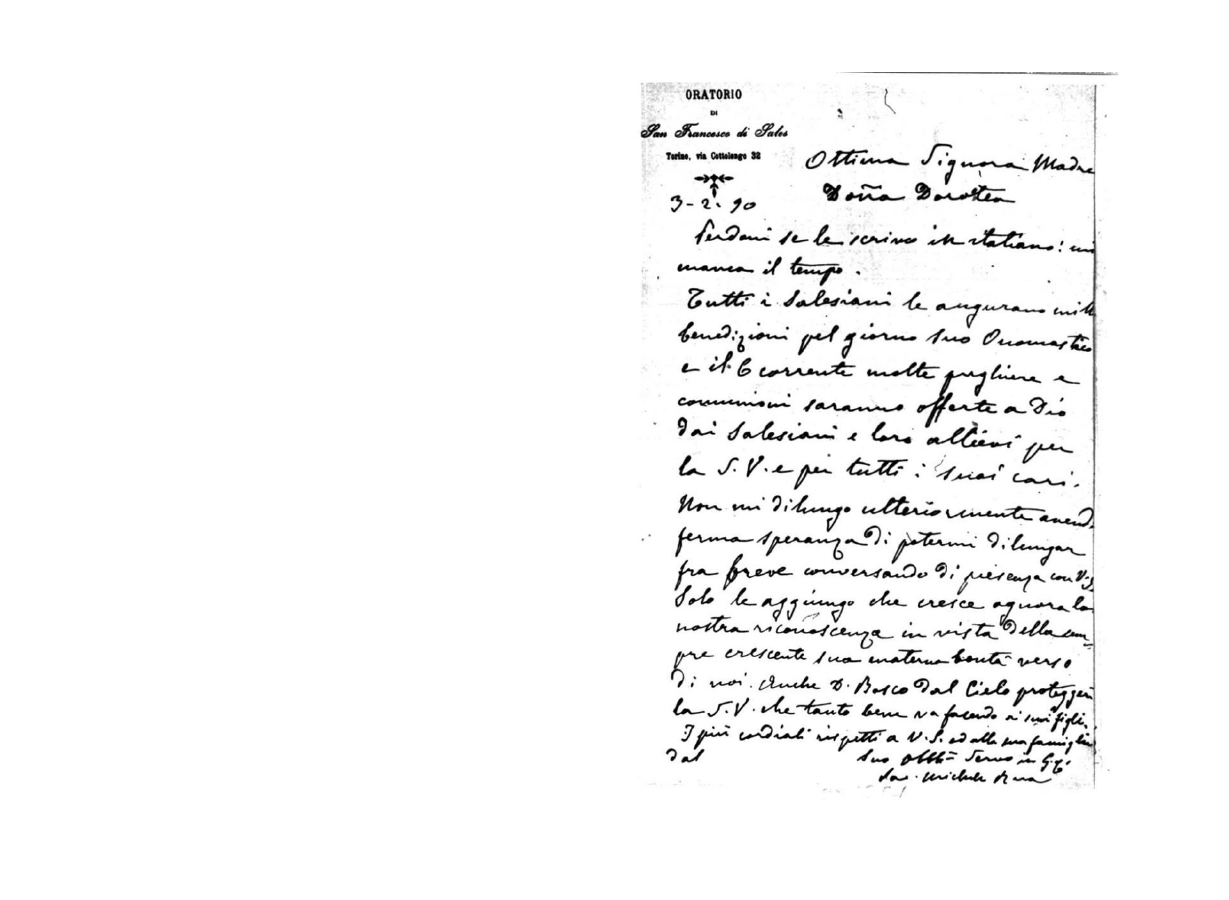 ORATORIO
DI
San Francesco di Sales
Torino, via Cottolengo 32
3-2-90
Ottima Signora Madre
Doña Dorotea
Perdoni se le scrivo in italiano: mi
manca il tempo.
Tutti i Salesiani le augurano mille
benedizioni pel giorno suo Onomastico
e il 6 corrente molte preghiere e
comunioni saranno offerte a Dio
dai Salesiani e loro allievi per
la S.V. e per tutti i suoi cari.
Non mi dilungo ulteriormente avend
ferma speranza di potermi dilungar
fra breve conversando di presenza con V.S.
Solo le aggiungo che cresce ognora la
nostra riconoscenza in vista della sem-
pre crescente sua materna bontà verso
di noi. Anche D. Bosco dal Cielo protegger
la S.V. che tanto bene va facendo ai suoi figli.
I più cordiali rispetti a V.S. ed alla sua famiglia
dal
Suo Obbl. Servo in G.C.
Sac. Michele Rua